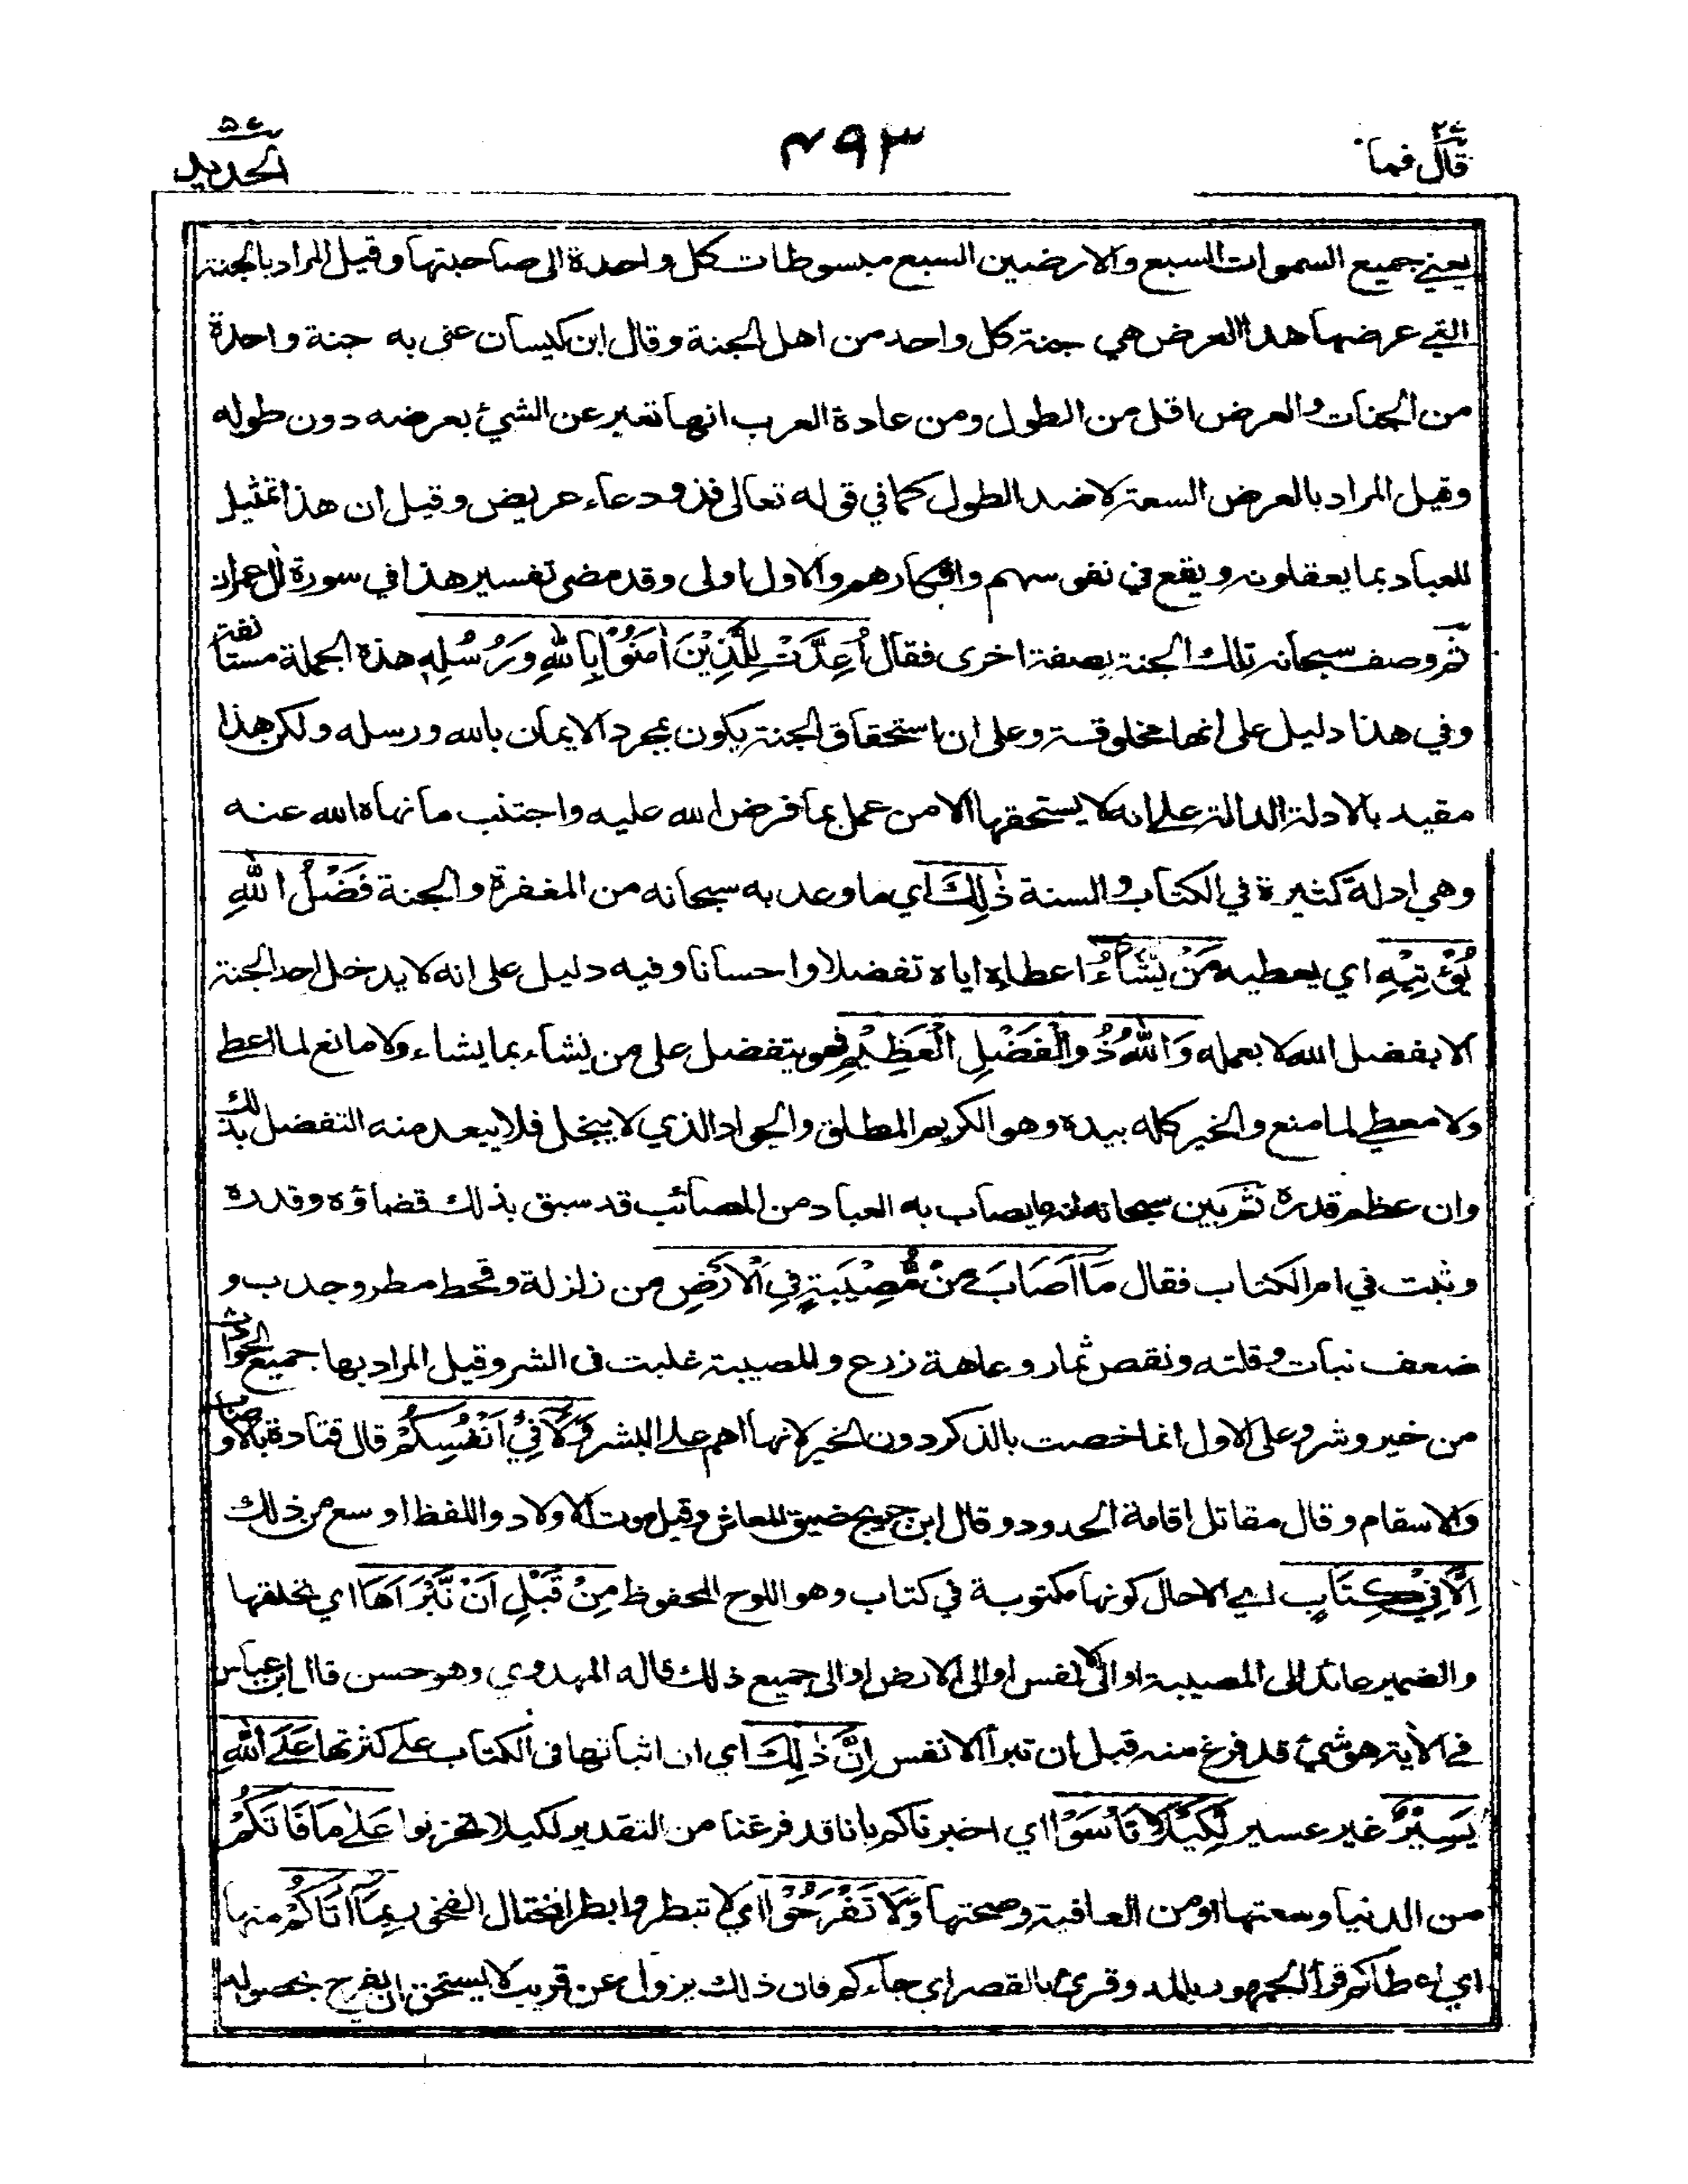 قال فما
٢٧
٤٩٣
الحديد
٥٧
يعني جميع السموات السبع والارضين السبع مبسوطات كل واحدة الى صاحبتها وقيل المراد بالجنة
التي عرضها هذا العرض هي جنة كل واحد من اهل الجنة وقال ابن كيسان عنى به جنة واحدة
من الجنات والعرض اقل من الطول ومن عادة العرب انها تعبر عن الشئ بعرضه دون طوله
وقيل المراد بالعرض السعة لا ضد الطول كما في قوله تعالى فذو دعاء عريض وقيل ان هذا تمثيل
للعباد بما يعقلونه ويقع في نفوسهم وافكارهم والاول اولى وقد مضى تفسير هذا في سورة ال عمران
ثم وصف سبحانه تلك الجنة بصفة اخرى فقال أُعِدَّتْ لِلَّذِيْنَ اٰمَنُوْا بِاللهِ وَرُسُلِهٖ هذه الجملة مستأنفة
وفي هذا دليل على انها مخلوقة وعلى ان استحقاق الجنة يكون بمجرد الايمان بالله ورسله ولكن هذا
مقيد بالادلة الدالة على انه لا يستحقها الا من عمل بما فرض الله عليه واجتنب ما نهاه الله عنه
وهي ادلة كثيرة في الكتاب والسنة ذٰلِكَ اي ما وعد به سبحانه من المغفرة والجنة فَضْلُ اللهِ
يُؤْتِيْهِ اي يعطيه مَنْ يَّشَآءُ اعطاءه اياه تفضلا واحسانا وفيه دليل على انه لا يدخل احد الجنة
الا بفضل الله لا بعمله وَاللهُ ذُو الْفَضْلِ الْعَظِيْمِ فهو يتفضل على من يشاء بما يشاء ولا مانع لما اعطى
ولا معطي لما منع والخير كله بيده وهو الكريم المطلق والجواد الذي لا يبخل فلا يبعد منه التفضل بذلك
وان عظم قدره ثم بين سبحانه ان ما يصاب به العباد من المصائب قد سبق بذلك قضاؤه وقدره
وثبت في ام الكتاب فقال مَآ اَصَابَ مِنْ مُّصِيْبَةٍ فِي الْاَرْضِ من زلزلة وقحط مطر وجدب و
ضعف نبات وقلته ونقص ثمار وعاهة زرع والمصيبة غلبت في الشر وقيل المراد بها جميع الحوادث
من خير وشر وعلى الاول انما خصت بالذكر دون الخير لانها اهم على البشر وَلَا فِيْ اَنْفُسِكُمْ قال قتادة بالاوصاب
والاسقام وقال مقاتل اقامة الحدود وقال ابن جريج ضيق المعاش وقيل موت الاولاد واللفظ اوسع من ذلك
اِلَّا فِيْ كِتَابٍ اي الا حال كونها مكتوبة في كتاب وهو اللوح المحفوظ مِنْ قَبْلِ اَنْ نَّبْرَاَهَا اي نخلقها
والضمير عائد الى المصيبة او الى الانفس او الى الارض او الى جميع ذلك قاله المهدوي وهو حسن قال ابن عباس
في الاية هو شئ قد فرغ منه قبل ان تبرأ الانفس اِنَّ ذٰلِكَ اي ان اثباتها في الكتاب على كثرتها عَلَى اللهِ
يَسِيْرٌ غير عسير لِّكَيْلَا تَاْسَوْا اي اخبرناكم بانا قد فرغنا من التقدير لكيلا تحزنوا عَلٰى مَا فَاتَكُمْ
من الدنيا وسعتها او من العافية وصحتها وَلَا تَفْرَحُوْا اي لا تبطروا بطر المختال الفخور بِمَآ اٰتَاكُمْ منها
اي اعطاكم قرأ الجمهور بالمد وقرئ بالقصر اي جاءكم فان ذلك يزول عن قريب لا يستحق ان يفرح بحصوله